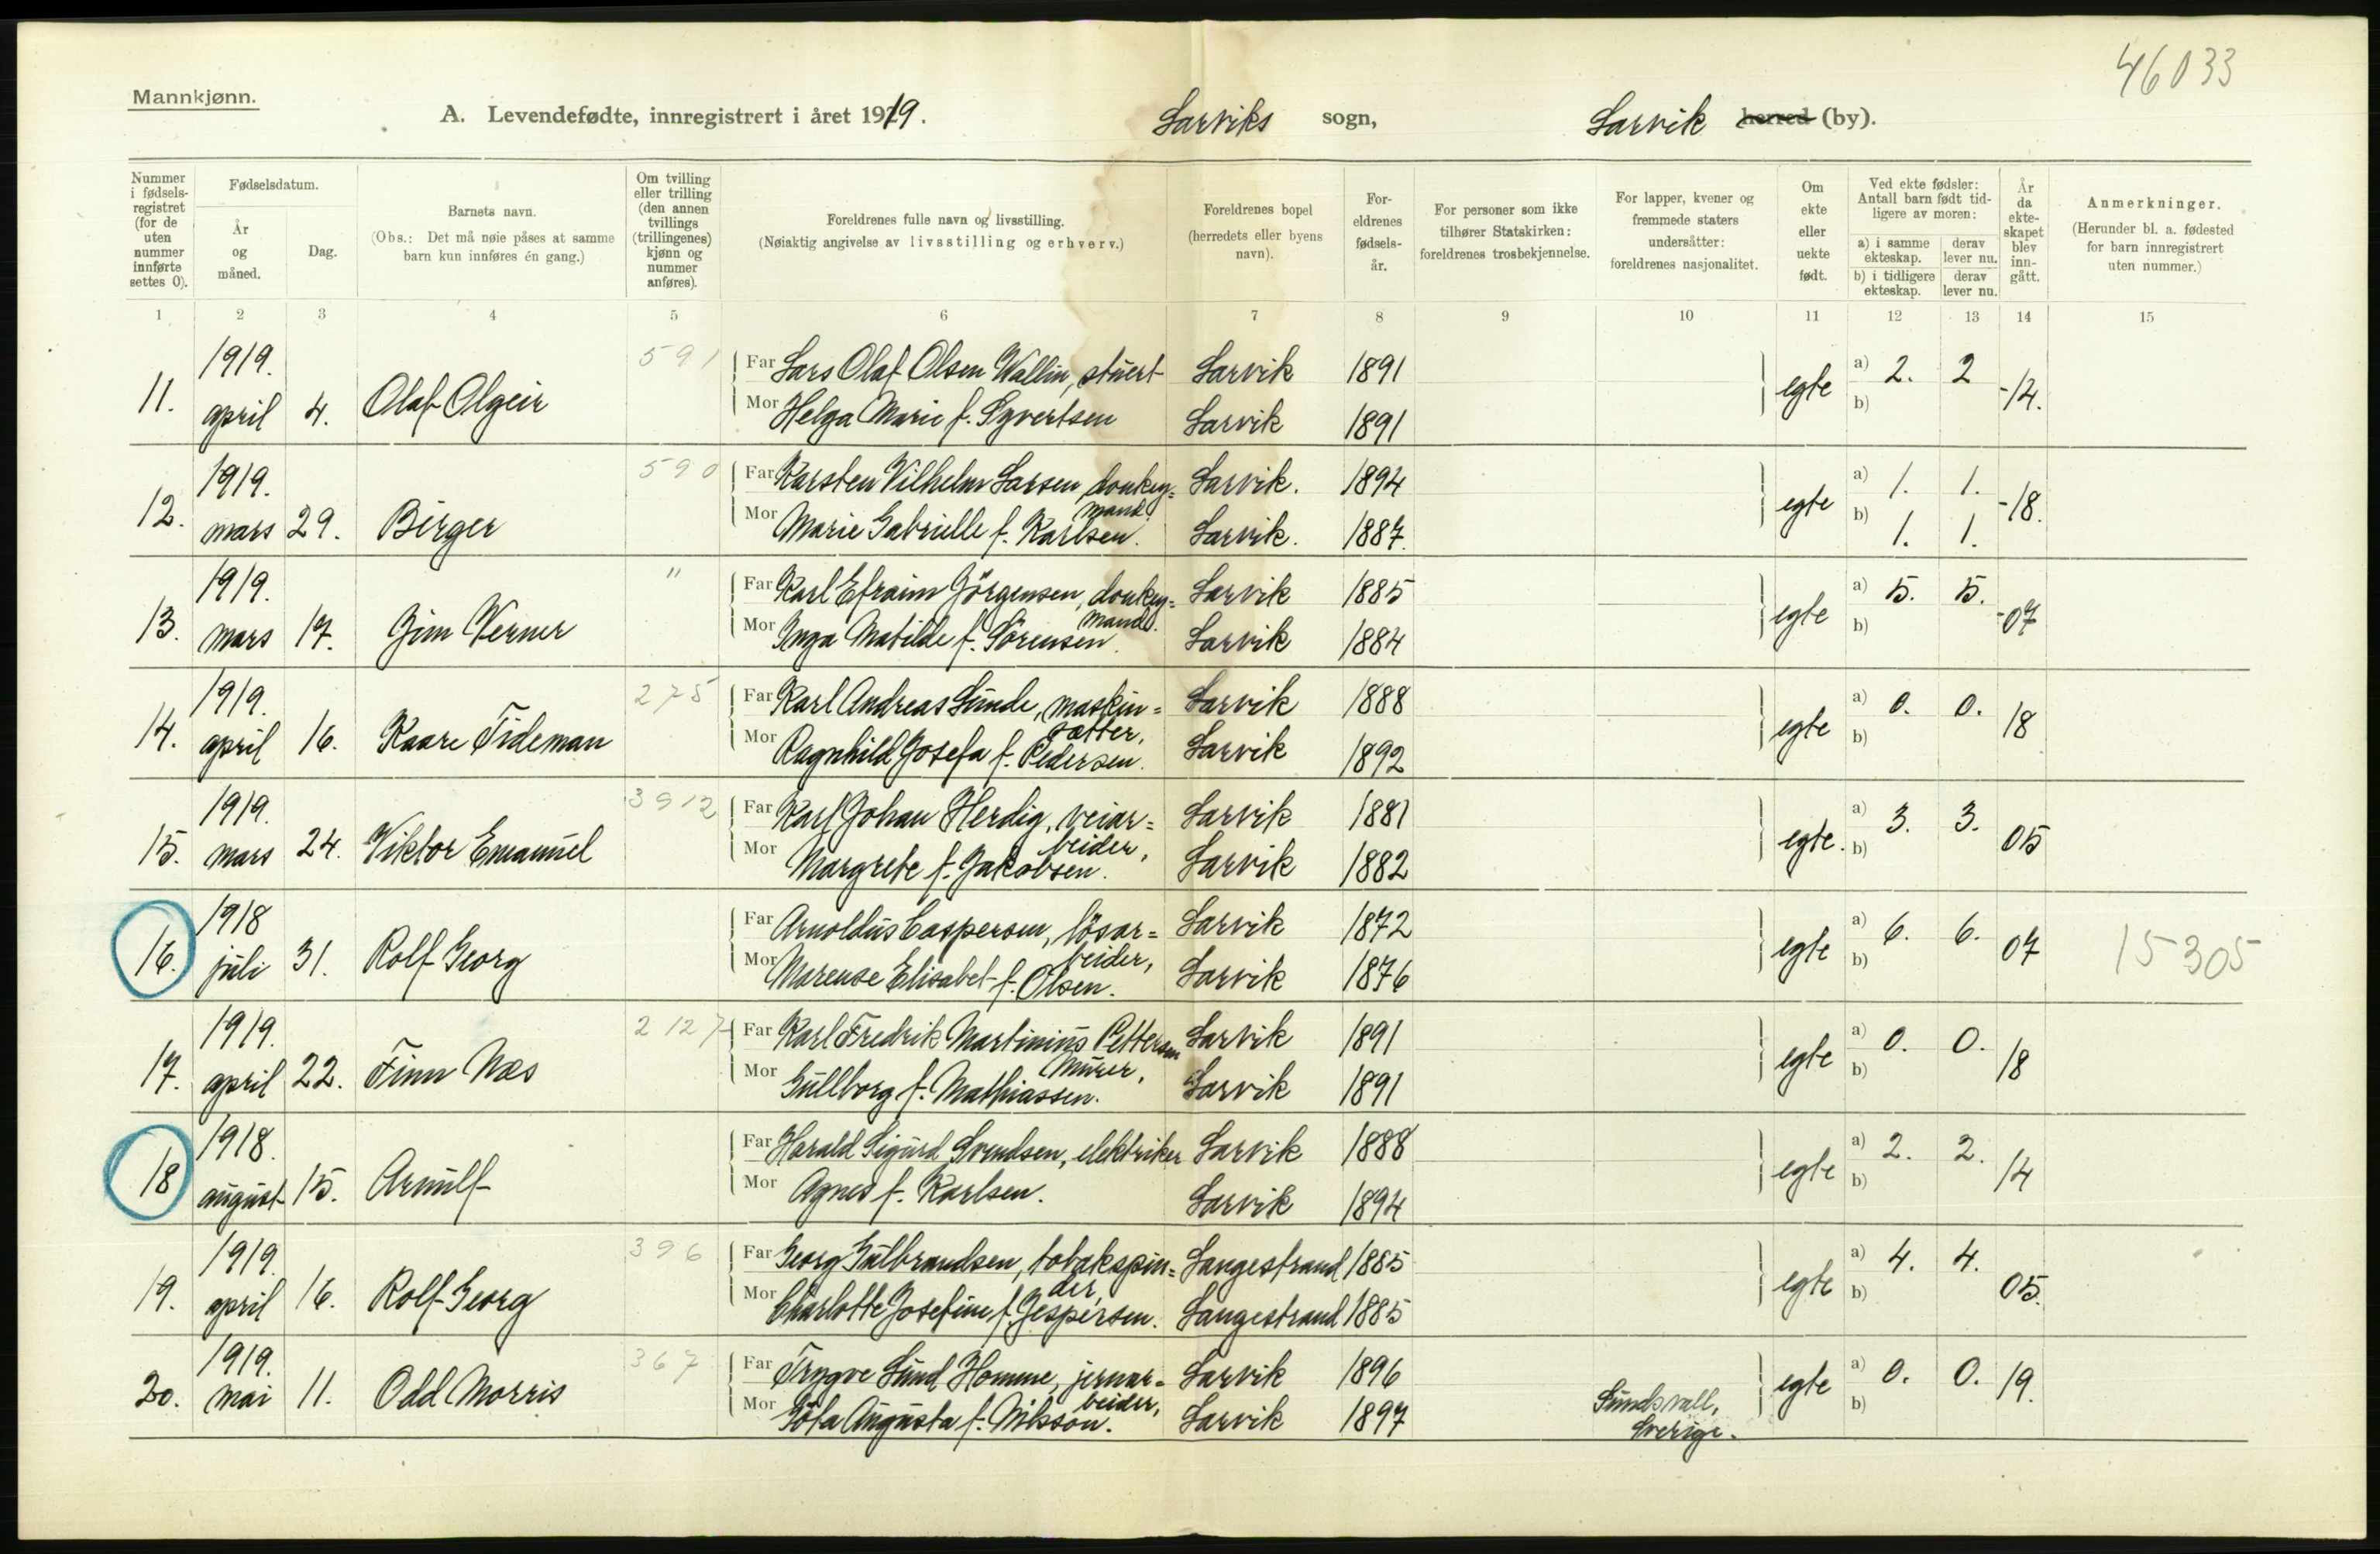 46033
Mannkjønn.
A. Levendefødte, innregistrert i året 1919. Larviks sogn, Larvik herred (by).
Nummer i fødsels-registret (for de uten nummer innførte settes 0).
Fødselsdatum.
År og måned.
Dag.
Barnets navn.
(Obs.: Det må nøie påses at samme barn kun innføres én gang.)
Om tvilling eller trilling (den annen tvillings (trillingenes) kjønn og nummer anføres).
Foreldrenes fulle navn og livsstilling.
(Nøiaktig angivelse av livsstilling og erhverv.)
Foreldrenes bopel (herredets eller byens navn).
For-eldrenes fødsels-år.
For personer som ikke tilhører Statskirken: foreldrenes trosbekjennelse.
For lapper, kvener og fremmede staters undersåtter: foreldrenes nasjonalitet.
Om ekte eller uekte født.
Ved ekte fødsler: Antall barn født tid-ligere av moren:
a) i samme ekteskap. derav lever nu.
b) i tidligere ekteskap. derav lever nu.
År da ekte-skapet blev inn-gått.
Anmerkninger.
(Herunder bl. a. fødested for barn innregistrert uten nummer.)
1 2 3 4 5 6 7 8 9 10 11 12 13 14 15
11. 1919. april 4. Olaf Olgeir 591
Far Lars Olaf Olsen Wallin, stuert Larvik 1891 egte a) 2. 2 -14.
Mor Helga Marie f. Syvertsen Larvik 1891 b)
12. 1919. mars 29. Birger 590
Far Karsten Vilhelm Larsen, donkey=mand Larvik. 1894 egte a) 1. 1. -18.
Mor Marie Gabrielle f. Karlsen. Larvik. 1887. b) 1. 1.
13. 1919. mars 17. Jim Verner "
Far Karl Efraim Jörgensen, donkey=mand. Larvik 1885 egte a) 5. 5. -07
Mor Inga Matilde f. Sörensen. Larvik 1884 b)
14. 1919. april 16. Kaare Tideman 275
Far Karl Andreas Lunde, maskin=sætter, Larvik 1888 egte a) 0. 0. 18
Mor Ragnhild Josefa f. Pedersen. Larvik 1892 b)
15. 1919. mars 24. Viktor Emanuel 3912
Far Karl Johan Herdig, veiar=beider, Larvik 1881 egte. a) 3. 3. 05
Mor Margrete f. Jakobsen. Larvik 1882 b)
16. 1918 juli 31. Rolf Georg
Far Arnoldus Caspersen, lösar=beider, Larvik 1872 egte a) 6. 6. 07 15305
Mor Marense Elisabet f. Olsen. Larvik 1876 b)
17. 1919. april 22. Finn Næs 2127
Far Karl Fredrik Martinius Pettersen Murer, Larvik 1891 egte a) 0. 0. 18
Mor Gullborg f. Mathiassen. Larvik 1891 b)
18 1918. august 15. Arnulf
Far Harald Sigurd Svendsen, elektriker Larvik 1888 egte a) 2. 2. 14
Mor Agnes f. Karlsen. Larvik 1894 b)
19. 1919. april 16. Rolf Georg 396
Far Georg Gulbrandsen, tobakspin=der, Langestrand 1885 egte a) 4. 4. 05.
Mor Charlotte Josefine f. Jespersen. Langestrand 1885 b)
20. 1919. mai 11. Odd Morris 367
Far Trygve Lund Homme, jernar=beider, Larvik 1896 egte a) 0. 0. 19.
Mor Göta Augusta f. Nilsson. Larvik 1897 Sundsvall, Sverige. b)